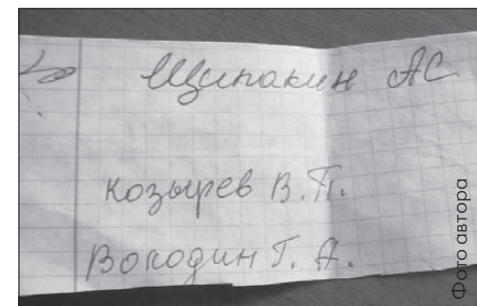 Щипакин АС
Козырев В.П.
Володин Г.А.
Фото автора